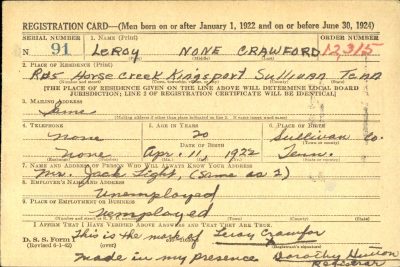 REGISTRATION CARD—(Men born on or after January 1, 1922 and on or before June 30, 1924)
SERIAL NUMBER 1. NAME (Print) ORDER NUMBER
N 91 LeROY NONE CRAWFORD 12,315
2. PLACE OF RESIDENCE (Print)
R#5 Horse Creek Kingsport Sullivan Tenn
[THE PLACE OF RESIDENCE GIVEN ON THE LINE ABOVE WILL DETERMINE LOCAL BOARD
JURISDICTION; LINE 2 OF REGISTRATION CERTIFICATE WILL BE IDENTICAL]
3. MAILING ADDRESS
Same
[Mailing address if other than place indicated on line 2. If same insert word same]
4. TELEPHONE 5. AGE IN YEARS 6. PLACE OF BIRTH
None 20 Sullivan Co.
DATE OF BIRTH
None Apr. 11, 1922 Tenn.
7. NAME AND ADDRESS OF PERSON WHO WILL ALWAYS KNOW YOUR ADDRESS
Mr. Jack Light, (Same as 2)
8. EMPLOYER'S NAME AND ADDRESS
Unemployed
9. PLACE OF EMPLOYMENT OR BUSINESS
Unemployed
I AFFIRM THAT I HAVE VERIFIED ABOVE ANSWERS AND THAT THEY ARE TRUE.
D. S. S. Form 1 This is the mark of Leroy Crawfor
made in my presence Dorothy
Registrar